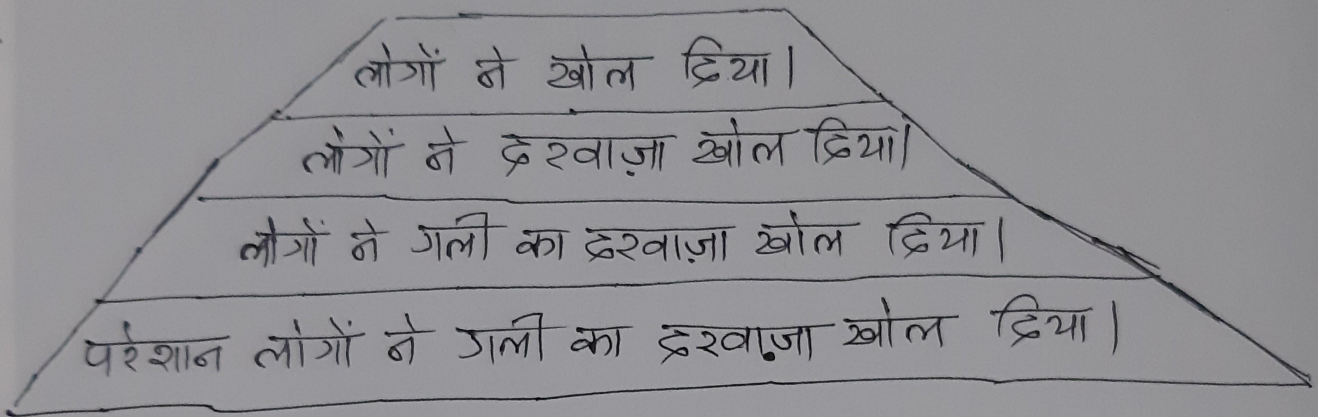 लोगों ने खोल दिया।
लोगों ने दरवाज़ा खोल दिया।
लोगों ने गली का दरवाज़ा खोल दिया।
परेशान लोगों ने गली का दरवाज़ा खोल दिया।